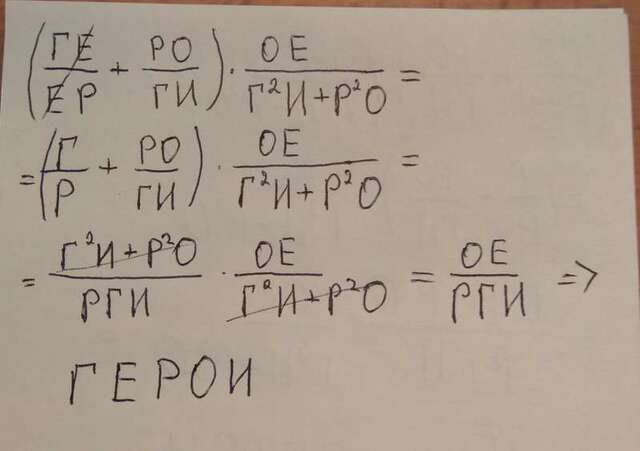 (ГЕ/ЕР + РО/ГИ) · ОЕ/(Г²И+Р²О) =
= (Г/Р + РО/ГИ) · ОЕ/(Г²И+Р²О) =
= (Г²И+Р²О)/РГИ · ОЕ/(Г²И+Р²О) = ОЕ/РГИ =>
ГЕРОИ